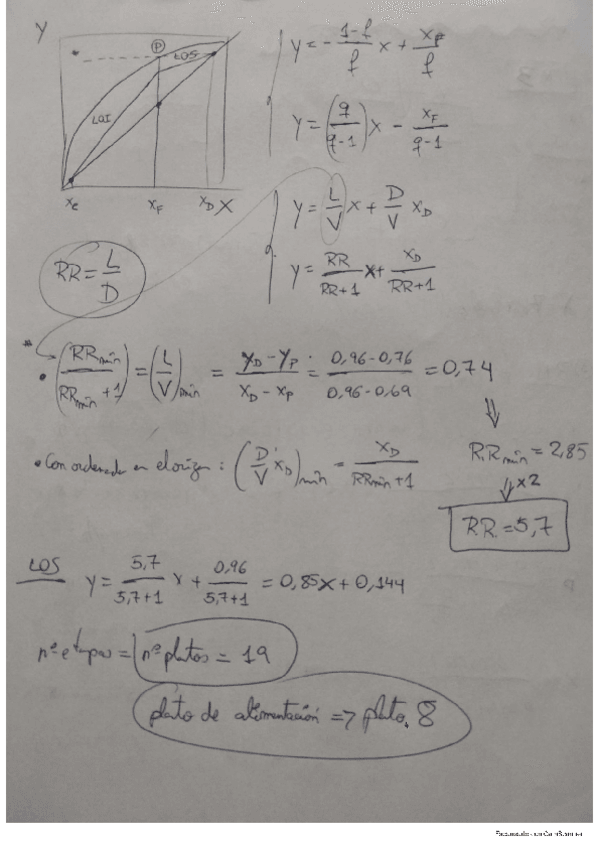 Y
P
LOS
LOI
xe xF xD X
y = - (1-f)/f x + xF/f
y = (q/(q-1)) x - xF/(q-1)
y = L/V x + D/V xD
y = RR/(RR+1) x + xD/(RR+1)
RR = L/D
* • (RRmín/(RRmín+1)) = (L/V)mín = (yD-yP)/(xD-xP) = (0,96-0,76)/(0,96-0,69) = 0,74
RRmín = 2,85
x2
RR = 5,7
• Con ordenada en el origen: (D/V xD)mín = xD/(RRmín+1)
LOS y = 5,7/(5,7+1) x + 0,96/(5,7+1) = 0,85x + 0,144
nº etapas = nº platos = 19
plato de alimentación => plato 8